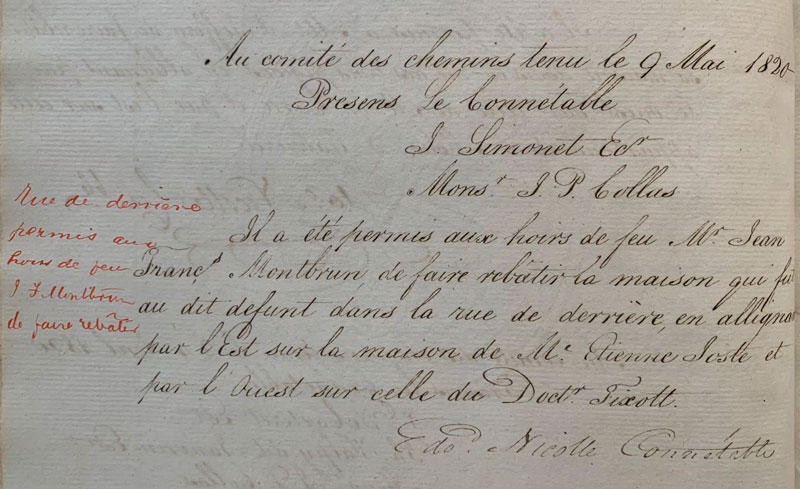 Au comité des chemins tenu le 9 Mai 1820
Presens Le Connétable
J. Simonet Ecr
Monsr J. P. Collas
Rue de derrière
permis aux
hoirs de feu
J F Montbrun
de faire rebâter
Il a été permis aux hoirs de feu Mr Jean
Françs Montbrun, de faire rebâtir la maison qui fut
au dit defunt dans la rue de derrière, en allignan
par l'Est sur la maison de Mr Etienne Joste et
par l'Ouest sur celle du Doctr Fixott.
Edd. Nicolle Connétable